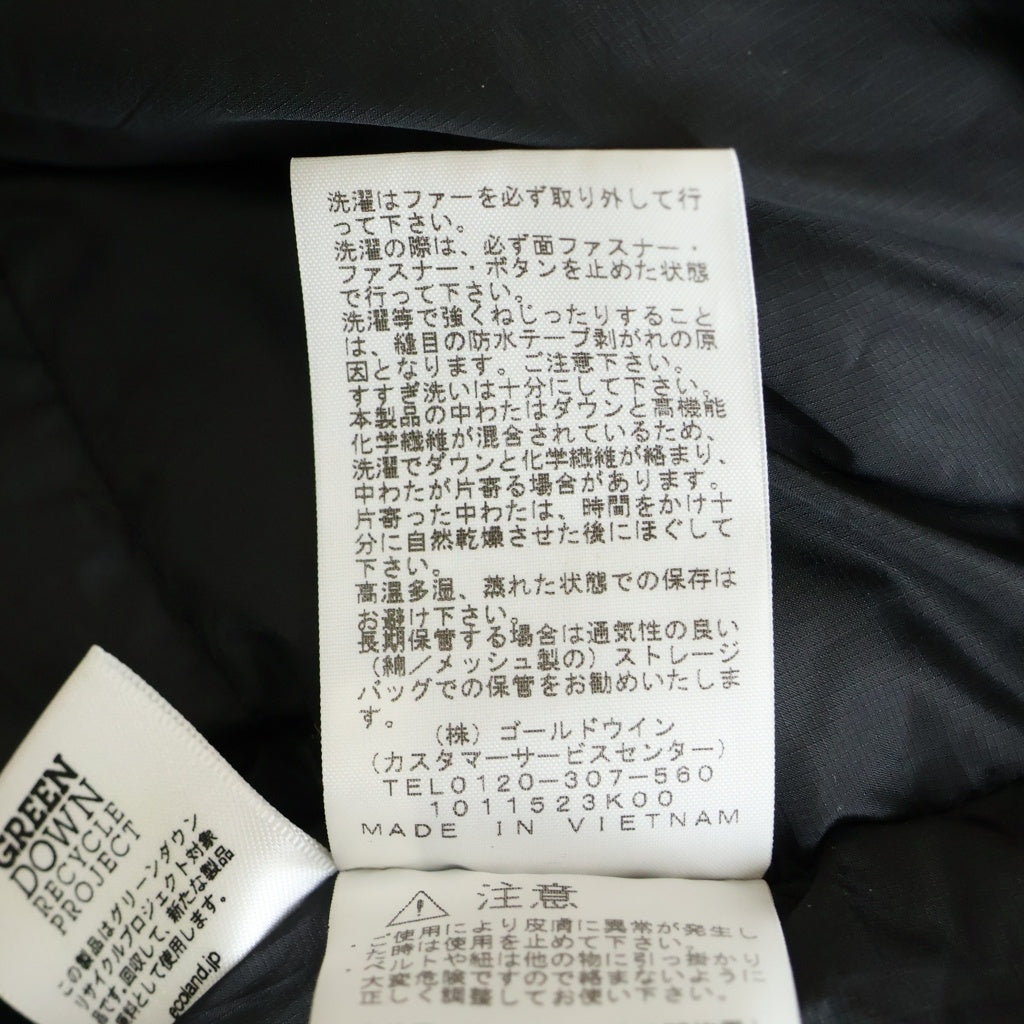 洗濯はファーを必ず取り外して行
って下さい。
洗濯の際は、必ず面ファスナー・
ファスナー・ボタンを止めた状態
で行って下さい。
洗濯等で強くねじったりすること
は、縫目の防水テープ剥がれの原
因となります。ご注意下さい。
すすぎ洗いは十分にして下さい。
本製品の中わたはダウンと高機能
化学繊維が混合されているため、
洗濯でダウンと化学繊維が絡まり、
中わたが片寄る場合があります。
片寄った中わたは、時間をかけ十
分に自然乾燥させた後にほぐして
下さい。
高温多湿、蒸れた状態での保存は
お避け下さい。
長期保管する場合は通気性の良い
（綿／メッシュ製の）ストレージ
バッグでの保管をお勧めいたしま
す。
（株）ゴールドウイン
（カスタマーサービスセンター）
TEL0120−307−560
1011523K00
MADE IN VIETNAM
GREEN
DOWN
RECYCLE
PROJECT
この製品はグリーンダウン
リサイクルプロジェクト対象
品です。回収して、新たな製品
原料として使用します。
ecoland.jp
注意
ご使用により皮膚に異常が発生し
た時は使用を止めて下さい。
ベルトや紐は他の物に引っ掛かり
大変危険ですので絡まないように
正しく調整してお使い下さい。